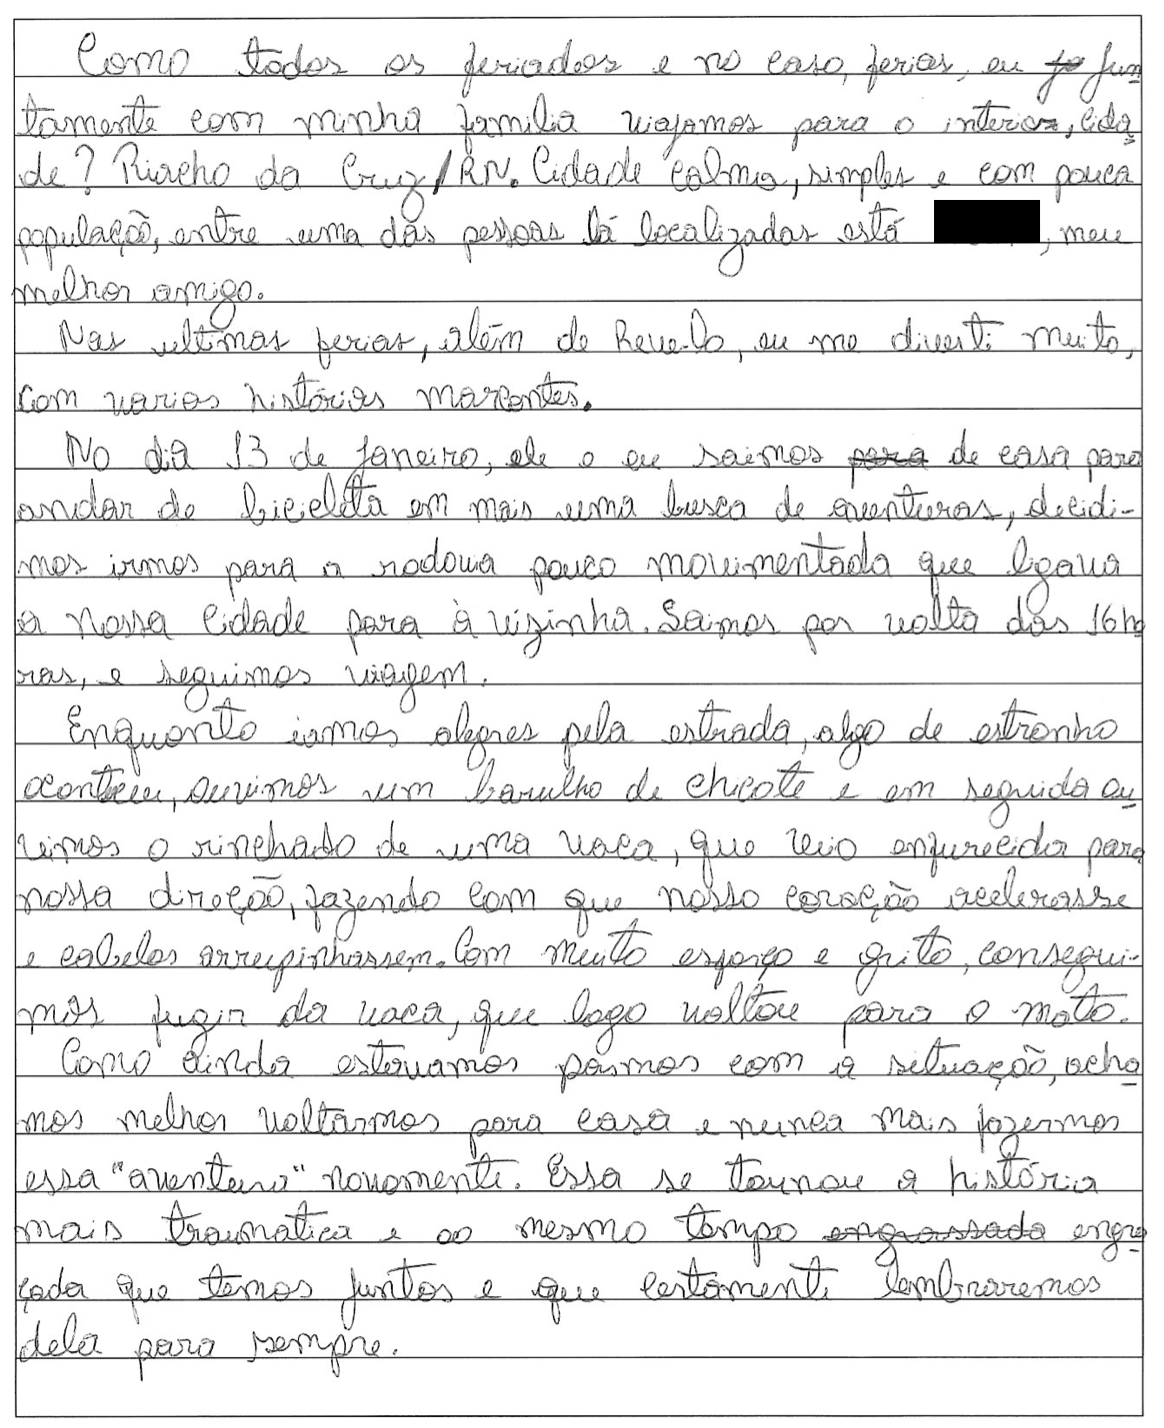 Como todos os feriados e no caso, ferias, eu jo jun
tamente com minha familia viajamos para o interior, cida
de? Riacho da Cruz/RN. Cidade calma, simples e com pouca
população, entre uma das pessoas lá localizadas está , meu
melhor amigo.
Nas ultimas ferias, além de Reve-lo, eu me diverti muito,
com varias histórias marcantes.
No dia 13 de janeiro, ele e eu saimos para de casa para
andar de bicicleta em mais uma busca de aventuras, decidi-
mos irmos para a rodovia pouco movimentada que ligava
a nossa cidade para à vizinha. Saimos por volta das 16 ho
ras, e seguimos viagem.
Enquanto iamos alegres pela estrada, algo de estranho
aconteceu, ouvimos um barulho de chicote e em seguida ou
vimos o rinchado de uma vaca, que veio enfurecida para
nossa direção, fazendo com que nosso coração acelerasse
e cabelos arrupinhassem. Com muito esforço e grito, consegui-
mos fugir da vaca, que logo voltou para o mato.
Como ainda estavamos pasmos com a situação, acha
mos melhor voltarmos para casa e nunca mais fazermos
essa "aventura" novamente. Essa se tornou a história
mais traumatica e ao mesmo tempo engrassada engra
çada que temos juntos e que certamente lembraremos
dela para sempre.